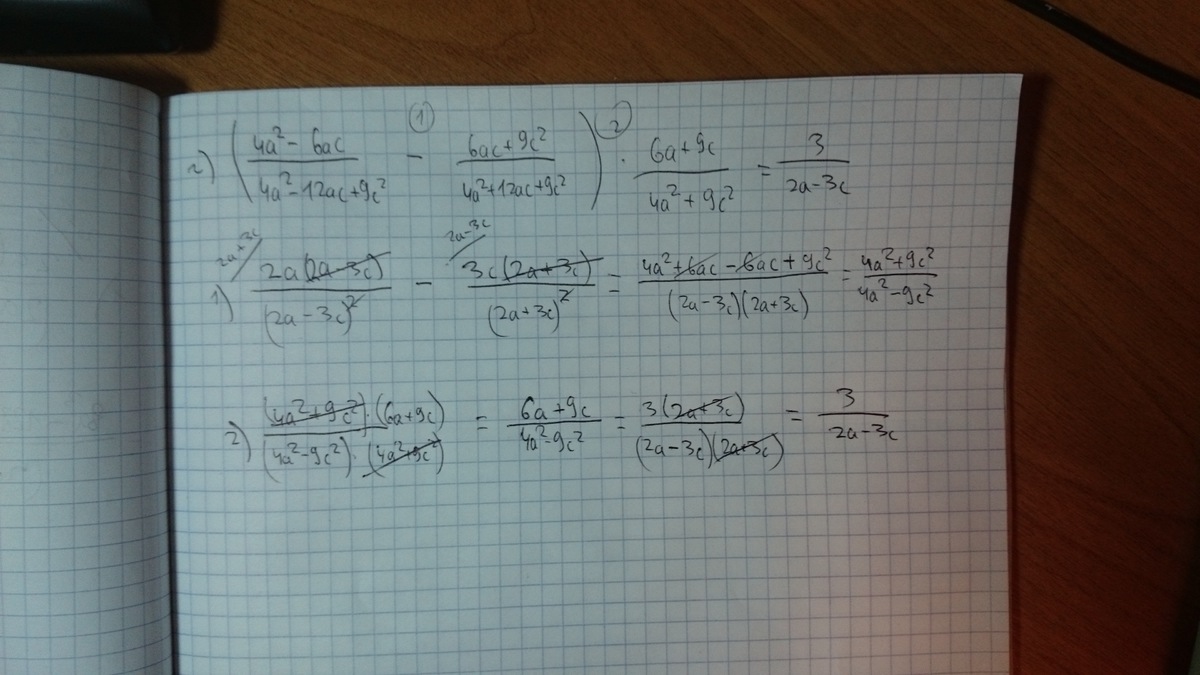 г) ( (4a² - 6ac)/(4a² - 12ac + 9c²) -① (6ac + 9c²)/(4a² + 12ac + 9c²) ) ·② (6a + 9c)/(4a² + 9c²) = 3/(2a - 3c)
1) ^(2a+3c)/ 2a(2a - 3c)/(2a - 3c)² - ^(2a-3c)/ 3c(2a + 3c)/(2a + 3c)² = (4a² + 6ac - 6ac + 9c²)/((2a - 3c)(2a + 3c)) = (4a² + 9c²)/(4a² - 9c²)
2) ((4a² + 9c²)·(6a + 9c))/((4a² - 9c²)·(4a² + 9c²)) = (6a + 9c)/(4a² - 9c²) = 3(2a + 3c)/((2a - 3c)(2a + 3c)) = 3/(2a - 3c)